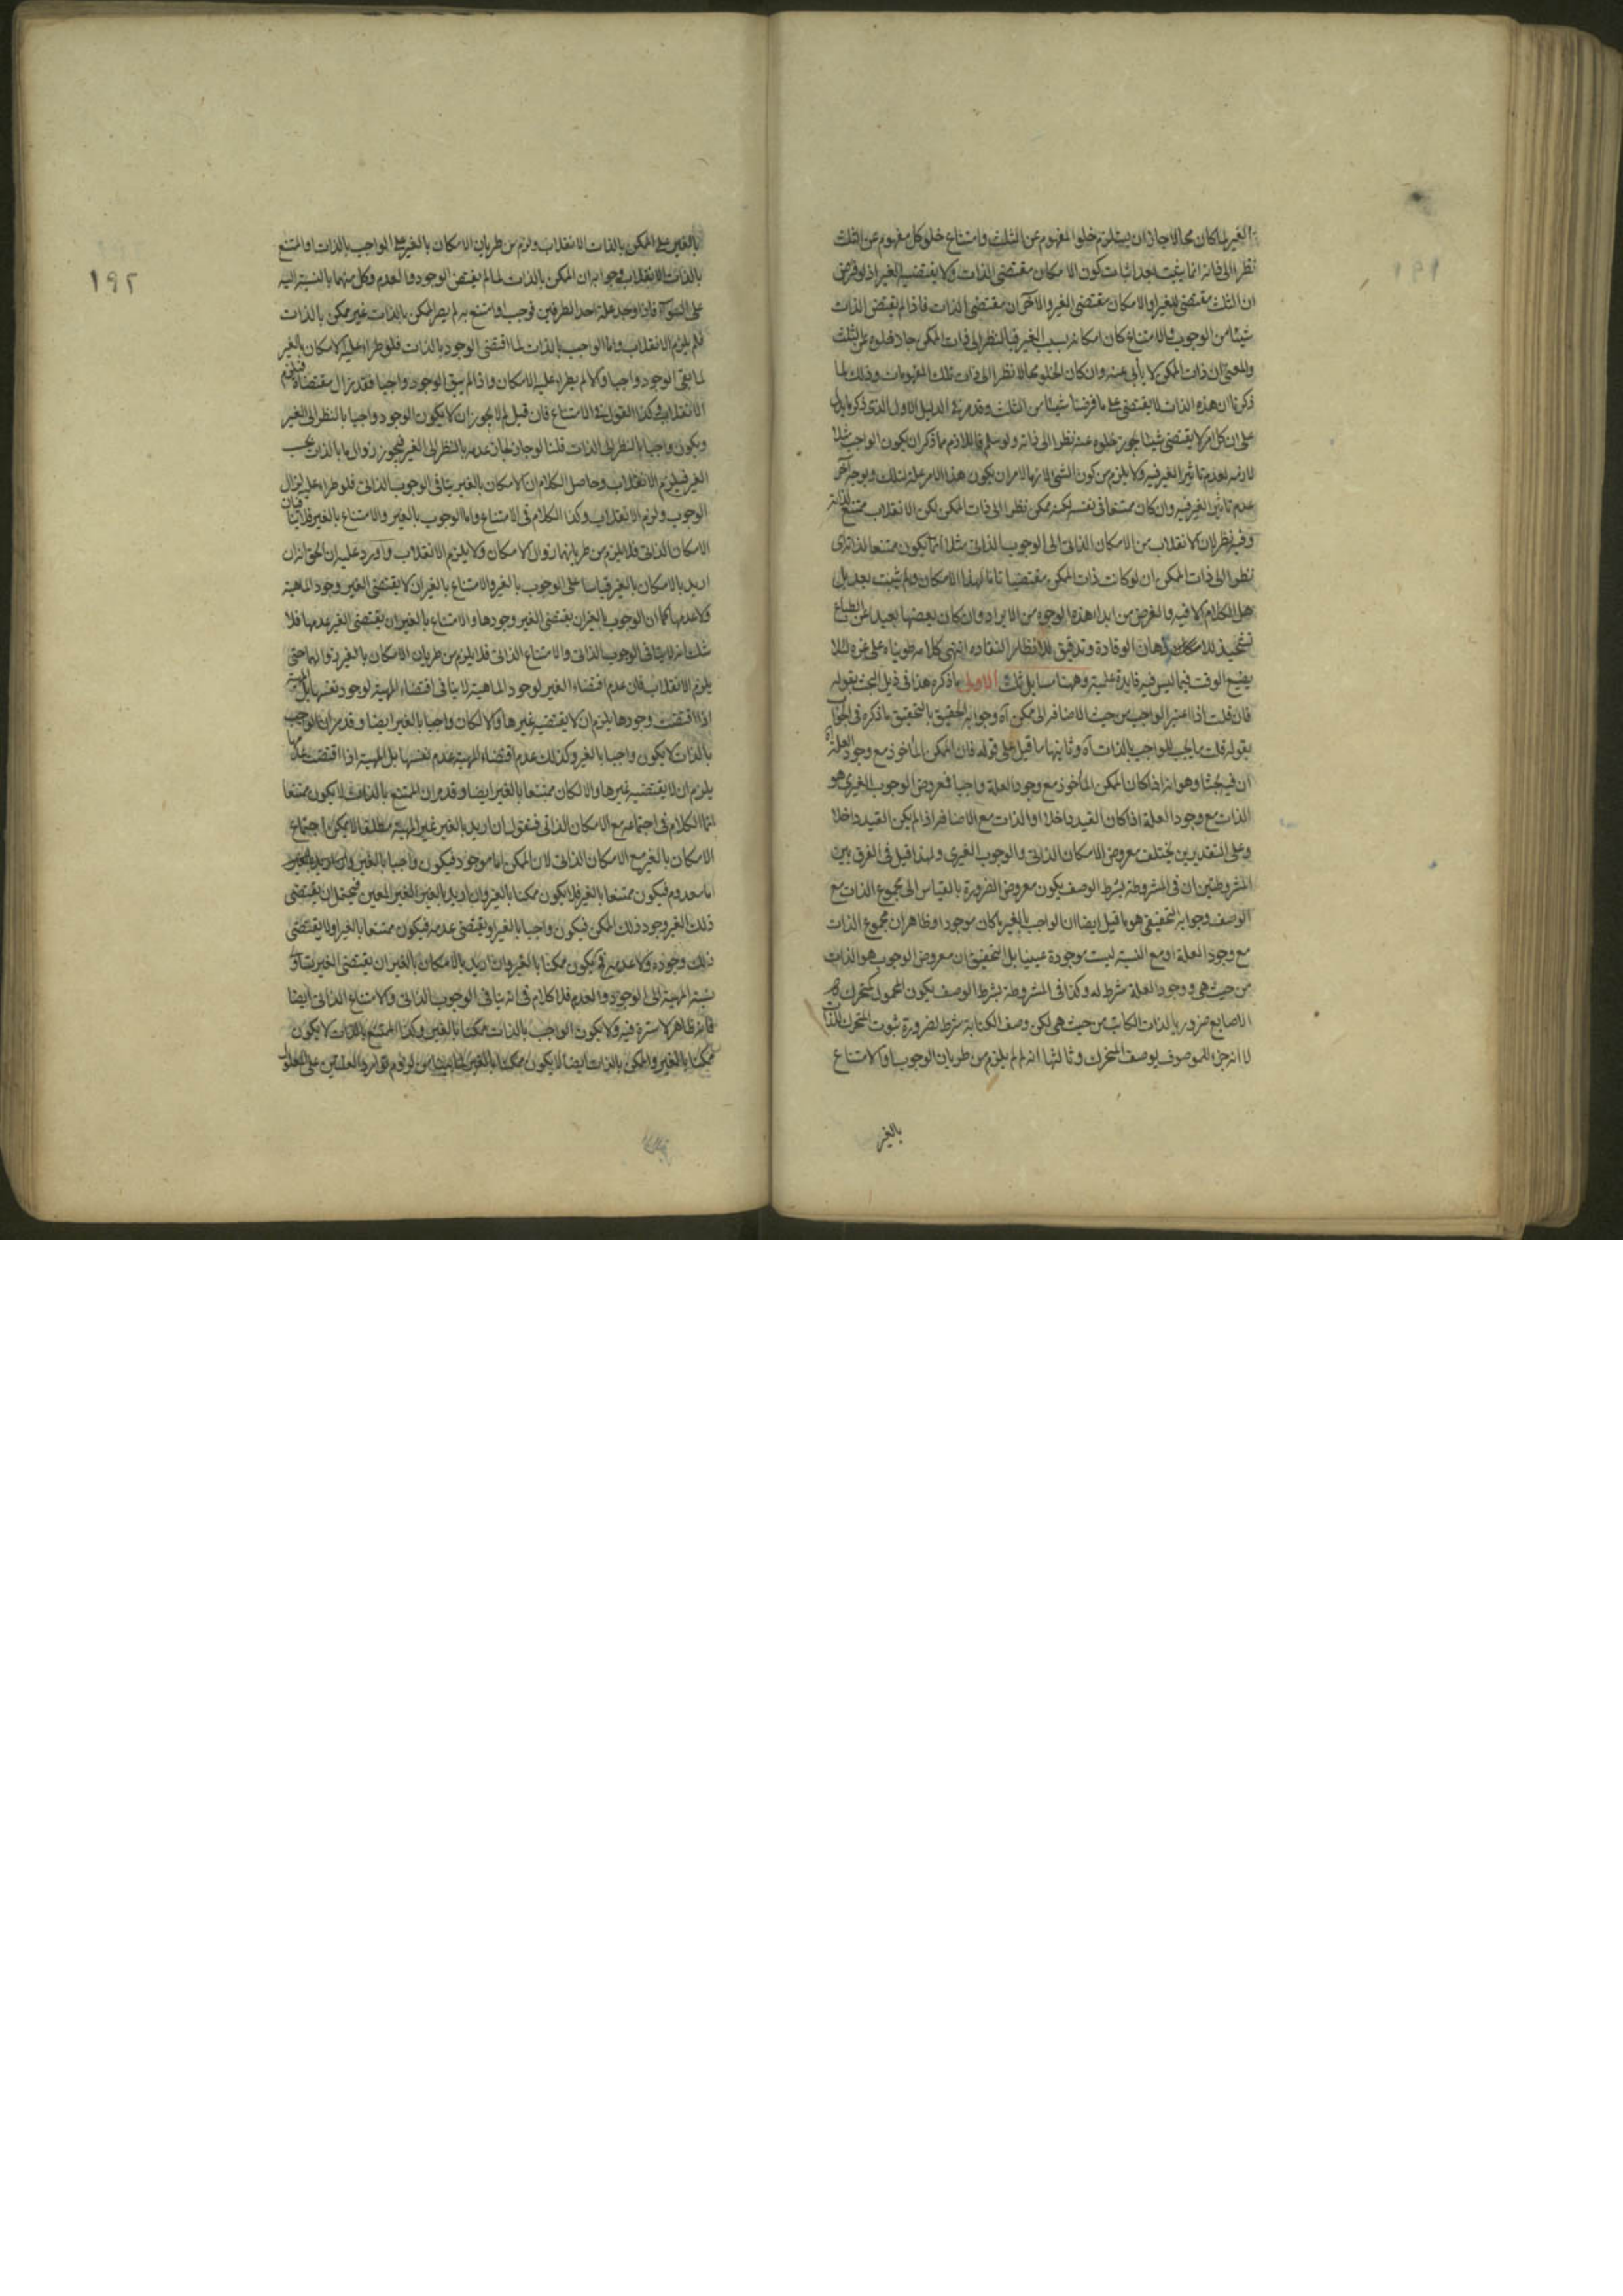 الغير لما كان محالا جاز ان يستلزم خلو المفهوم عن الثلث وامتناع خلو كل مفهوم عن الثلث
نظرا الى ذاته انما يثبت بعد اثبات كون الامكان مقتضى الذات ولا يقتضيه الغير اذ لو فرض
ان الثلث مقتضى للغير او الامكان مقتضى الغير والآخران مقتضى الذات فاذا لم يقتض الذات
شيئا من الوجوب والامتناع كان امكانه بسبب الغير فبالنظر الى ذات الممكن جاز خلوه عن الثلث
والمعنى ان ذات الممكن لا يأبى عنه وان كان الخلو محالا نظرا الى ذات تلك المفهومات وذلك لما
ذكرنا ان هذه الذات لا يقتضى على ما فرضنا شيئا من الثلث وقد مر فى الدليل الاول الذى ذكره ما يدل
على ان كل امر لا يقتضى شيئا يجوز خلوه عنه نظرا الى ذاته ولو سلم فاللازم مما ذكر ان يكون الواجب مثلا
لازمه لعدم تاثير الغير فيه ولا يلزم من كون الشئ لازما لامر ان يكون هذا الامر علة لذلك وبوجه آخر
عدم تاثير الغير فيه وان كان ممتنعا فى نفسه لكنه ممكن نظرا الى ذات الممكن لكن الانقلاب ممتنع لذاته
وفيه نظر لان الانقلاب من الامكان الذاتى الى الوجوب الذاتى مثلا انما يكون ممتنعا لذاته اى
نظرا الى ذات الممكن ان لو كانت ذات الممكن مقتضيا تاما لهذا الامكان ولم يثبت بعد بل
هل الكلام الا فيه والغرض من ابداء هذه الوجوه من الايراد وان كان بعضها بعيدا عن الطباع
تشحيذ للاذهان الوقادة وتدقيق للانظار النقادة انتهى كلامه طويناه على غره لئلا
يضيع الوقت فيما ليس فيه فايدة علمية وههنا مسايل ثلث الاولى ما ذكره هذا فى ذيل البحث بقوله
فان قلت اذا اعتبر الواجب من حيث الاضافه الى ممكن آه وجوابه الحقيق بالتحقيق ما ذكره فى الجواب
بقوله قلت ما يجب للواجب بالذات آه وثانيها ما قيل على قوله فان الممكن المأخوذ مع وجود العلة آه
ان فيه بحثا وهو انه اذا كان الممكن المأخوذ مع وجود العلة واجبا فمعروض الوجوب الغيرى هو
الذات مع وجود العلة اذا كان القيد داخلا او الذات مع الاضافه اذا لم يكن القيد داخلا
وعلى التقديرين يختلف معروض الامكان الذاتى والوجوب الغيرى ولهذا قيل فى الفرق بين
المشروطتين ان فى المشروطة بشرط الوصف يكون معروض الضرورة بالقياس الى مجموع الذات مع
الوصف وجوابه التحقيقى هو ما قيل ايضا ان الواجب بالغير ما كان موجودا وظاهر ان مجموع الذات
مع وجود العلة او مع النسبة ليست موجودة عينيا بل التحقيق ان معروض الوجوب هو الذات
من حيث هى ووجود العلة شرط له وكذا فى المشروطة بشرط الوصف يكون المحمول كمتحرك
الاصابع ضروريا لذات الكاتب من حيث هى لكن وصف الكتابة شرط لضرورة ثبوت المتحرك للذات
لا انه جزء للموصوف بوصف المتحرك وثالثها انه لم لم يلزم من طريان الوجوب او الامتناع
بالغير
١٩١
١٩٢
بالغير على الممكن بالذات الانقلاب ولزم من طريان الامكان بالغير على الواجب بالذات او الممتنع
بالذات الانقلاب وجوابه ان الممكن بالذات لما لم يقتض الوجود والعدم وكل منهما بالنسبة اليه
على السواء فاذا وجد علة احد الطرفين فوجب او امتنع به لم يصر الممكن بالذات غير ممكن بالذات
فلم يلزم الانقلاب واما الواجب بالذات لما اقتضى الوجود بالذات فلو طراء عليه الامكان بالغير
لما بقى الوجود واجبا والا لم يطراء عليه الامكان واذا لم يبق الوجود واجبا فقد زال مقتضاه فيلزم
الانقلاب وكذا القول فى الامتناع فان قيل لم لا يجوز ان لا يكون الوجود واجبا بالنظر الى الغير
ويكون واجبا بالنظر الى الذات قلنا لو جاز لجاز عدمه بالنظر الى الغير فيجوز زوال ما بالذات بحسب
الغير فيلزم الانقلاب وحاصل الكلام ان الامكان بالغير ينافى الوجوب الذاتى فلو طراء عليه لزال
الوجوب ولزم الانقلاب وكذا الكلام فى الامتناع واما الوجوب بالغير والامتناع بالغير فلا ينافيان
الامكان الذاتى فلا يلزم من طريانهما زوال الامكان ولا يلزم الانقلاب واورد عليه ان الحق انه ان
اريد بالامكان بالغير قياسا على الوجوب بالغير والامتناع بالغير ان لا يقتضى الغير وجود الماهية
ولا عدمها كما ان الوجوب بالغير ان يقتضى الغير وجودها والامتناع بالغير ان يقتضى الغير عدمها فلا
شك انه لا ينافى الوجوب الذاتى والامتناع الذاتى فلا يلزم من طريان الامكان بالغير زوالهما حتى
يلزم الانقلاب فان عدم اقتضاء الغير لوجود الماهية لا ينافى اقتضاء المهية لوجود نفسها بل المهية
اذا اقتضت وجودها يلزم ان لا يقتضيه غيرها والا لكان واجبا بالغير ايضا وقد مر ان الواجب
بالذات لا يكون واجبا بالغير وكذلك عدم اقتضاء المهية عدم نفسها بل المهية اذا اقتضت عدمها
يلزم ان لا يقتضيه غيرها والا لكان ممتنعا بالغير ايضا وقد مر ان الممتنع بالذات لا يكون ممتنعا
انما الكلام فى اجتماعه مع الامكان الذاتى فنقول ان اريد بالغير غير المهية مطلقا لا يمكن اجتماع
الامكان بالغير مع الامكان الذاتى لان الممكن اما موجود فيكون واجبا بالغير
اما معدوم فيكون ممتنعا بالغير فلا يكون ممكنا بالغير وان اريد بالغير الغير المعين فيحتمل ان يقتضى
ذلك الغير وجود ذلك الممكن فيكون واجبا بالغير او يقتضى عدمه فيكون ممتنعا بالغير او لا يقتضى
ذلك وجوده ولا عدمه فح يكون ممكنا بالغير وان اريد بالامكان بالغير ان يقتضى الغير تساوى
نسبة المهية الى الوجود والعدم فلا كلام فى انه ينافى الوجوب الذاتى والامتناع الذاتى ايضا
فانه ظاهر لا سترة فيه ولا يكون الواجب بالذات ممكنا بالغير وكذا الممتنع بالذات لا يكون
ممكنا بالغير والممكن بالذات ايضا لا يكون ممكنا بالغير لما بينا من لزوم توارد العلتين على المعلول